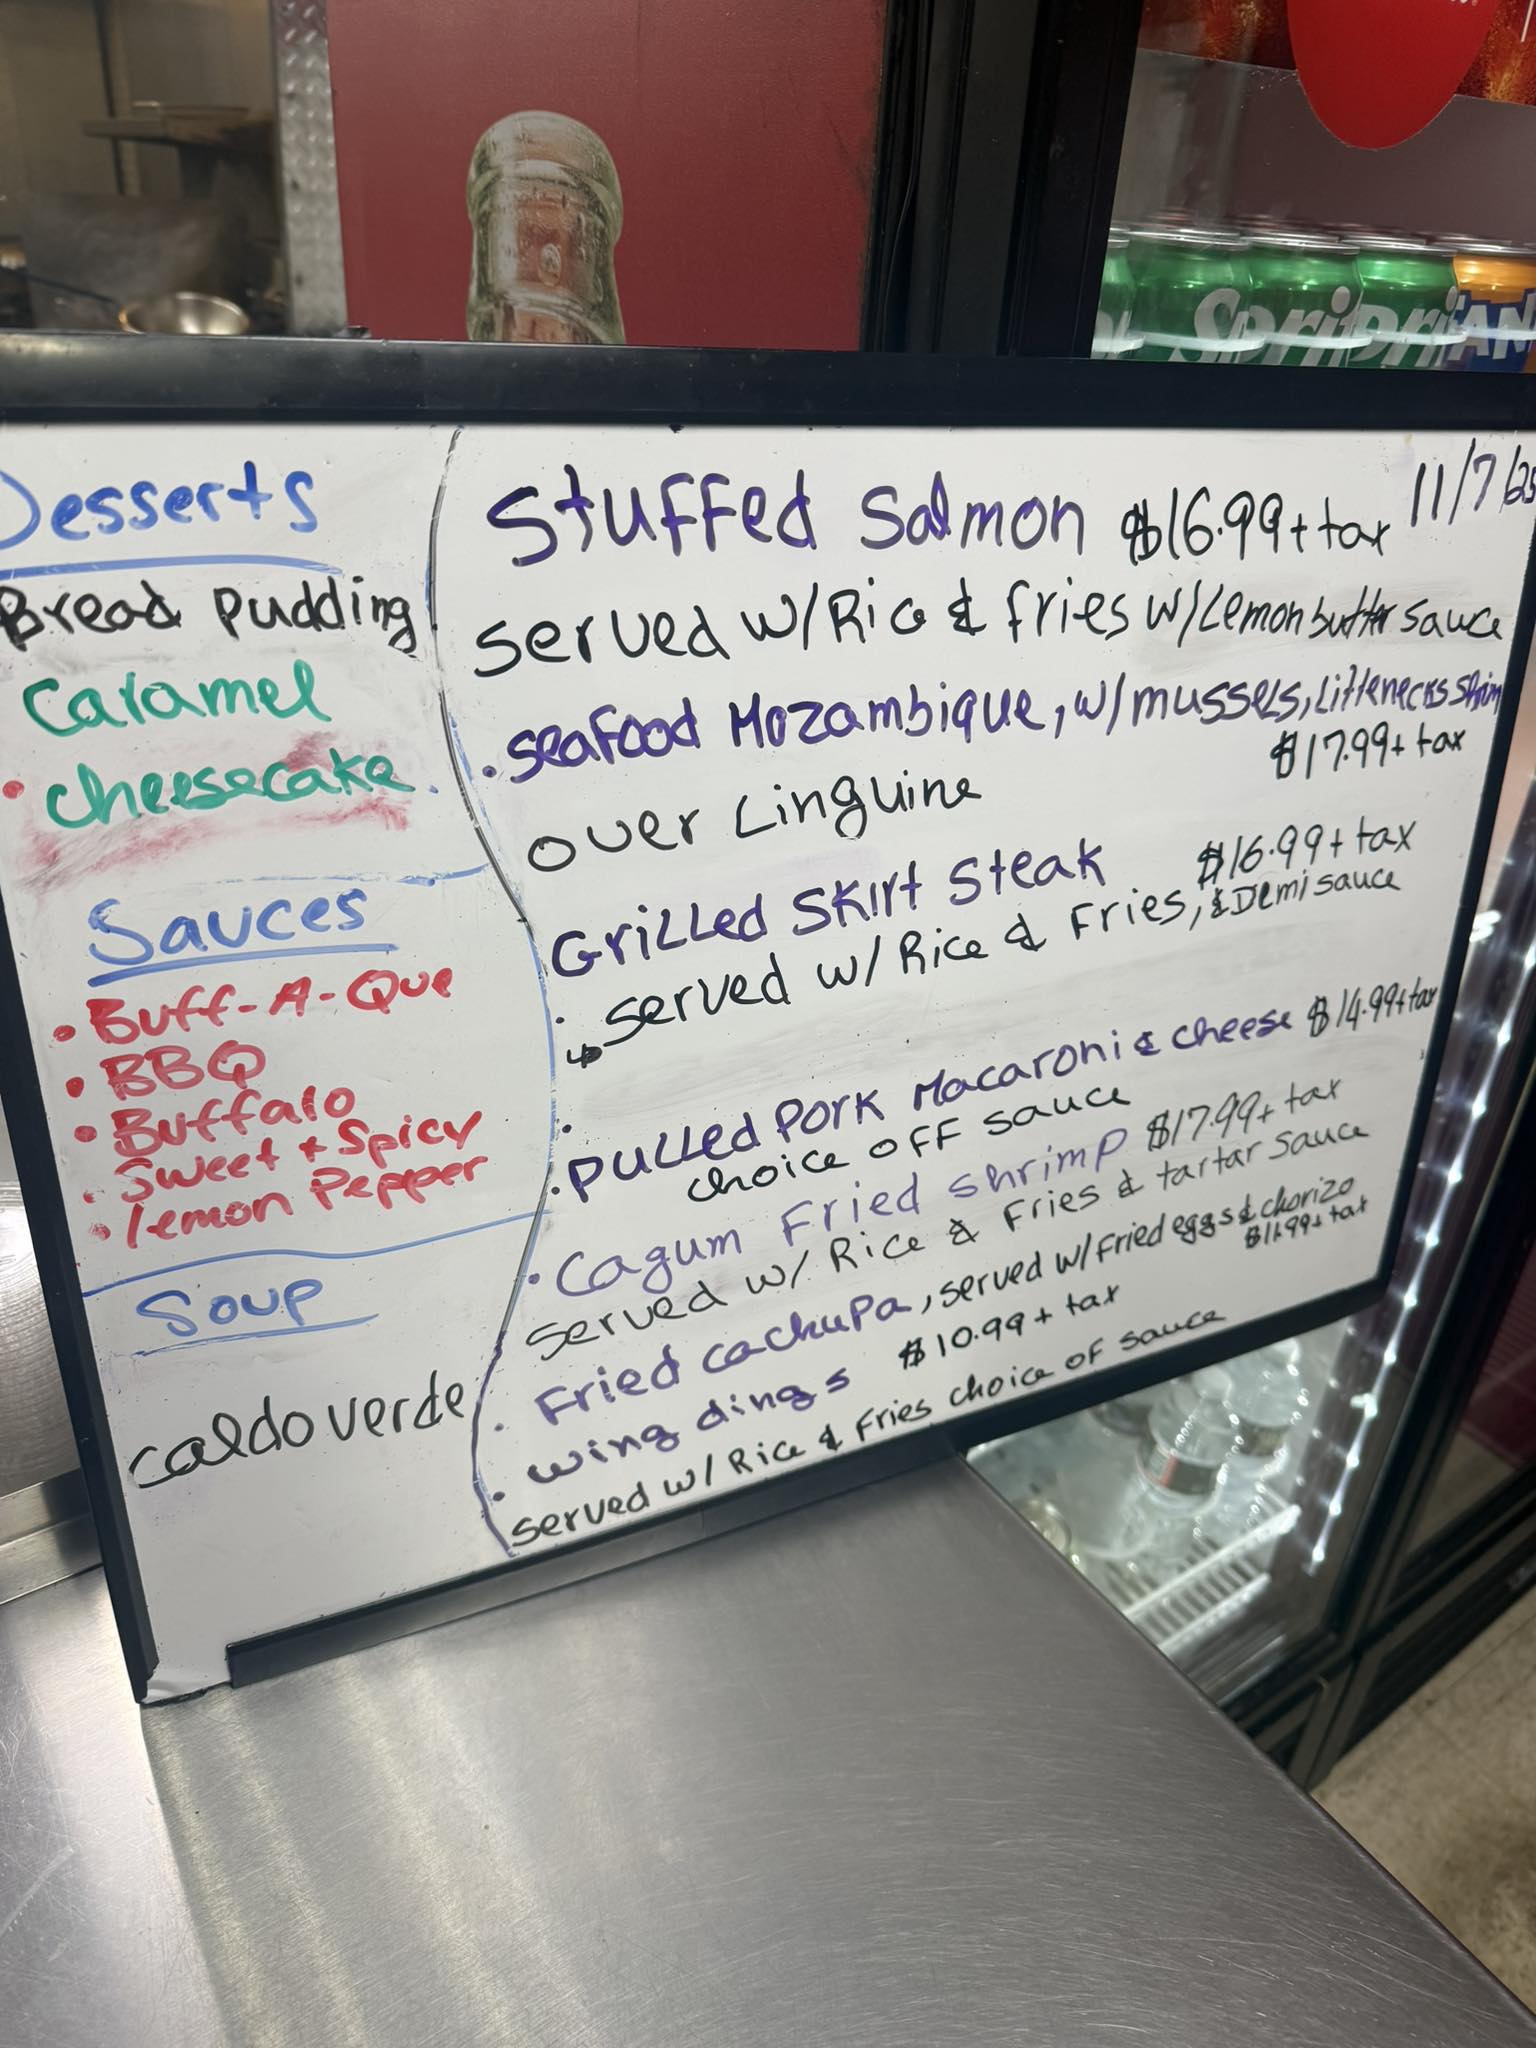 Desserts
Bread Pudding
Caramel
Cheesecake
Sauces
Buff-A-Que
BBQ
Buffalo
Sweet + Spicy
lemon Pepper
Soup
caldo verde
11/7/25
Stuffed Salmon $16.99 + tax
served w/Rice & fries w/Lemon butter sauce
seafood Mozambique, w/mussels, Littlenecks shrimp
$17.99 + tax
over Linguine
Grilled Skirt Steak $16.99 + tax
served w/ Rice & Fries, & Demi sauce
Pulled Pork Macaroni & cheese $14.99 + tax
choice off sauce
Cagum Fried shrimp $17.99 + tax
served w/ Rice & Fries & tartar sauce
Fried cachupa, served w/Fried eggs & chorizo
$11.99 + tax
wing dings $10.99 + tax
served w/ Rice & Fries choice of sauce
Sprite